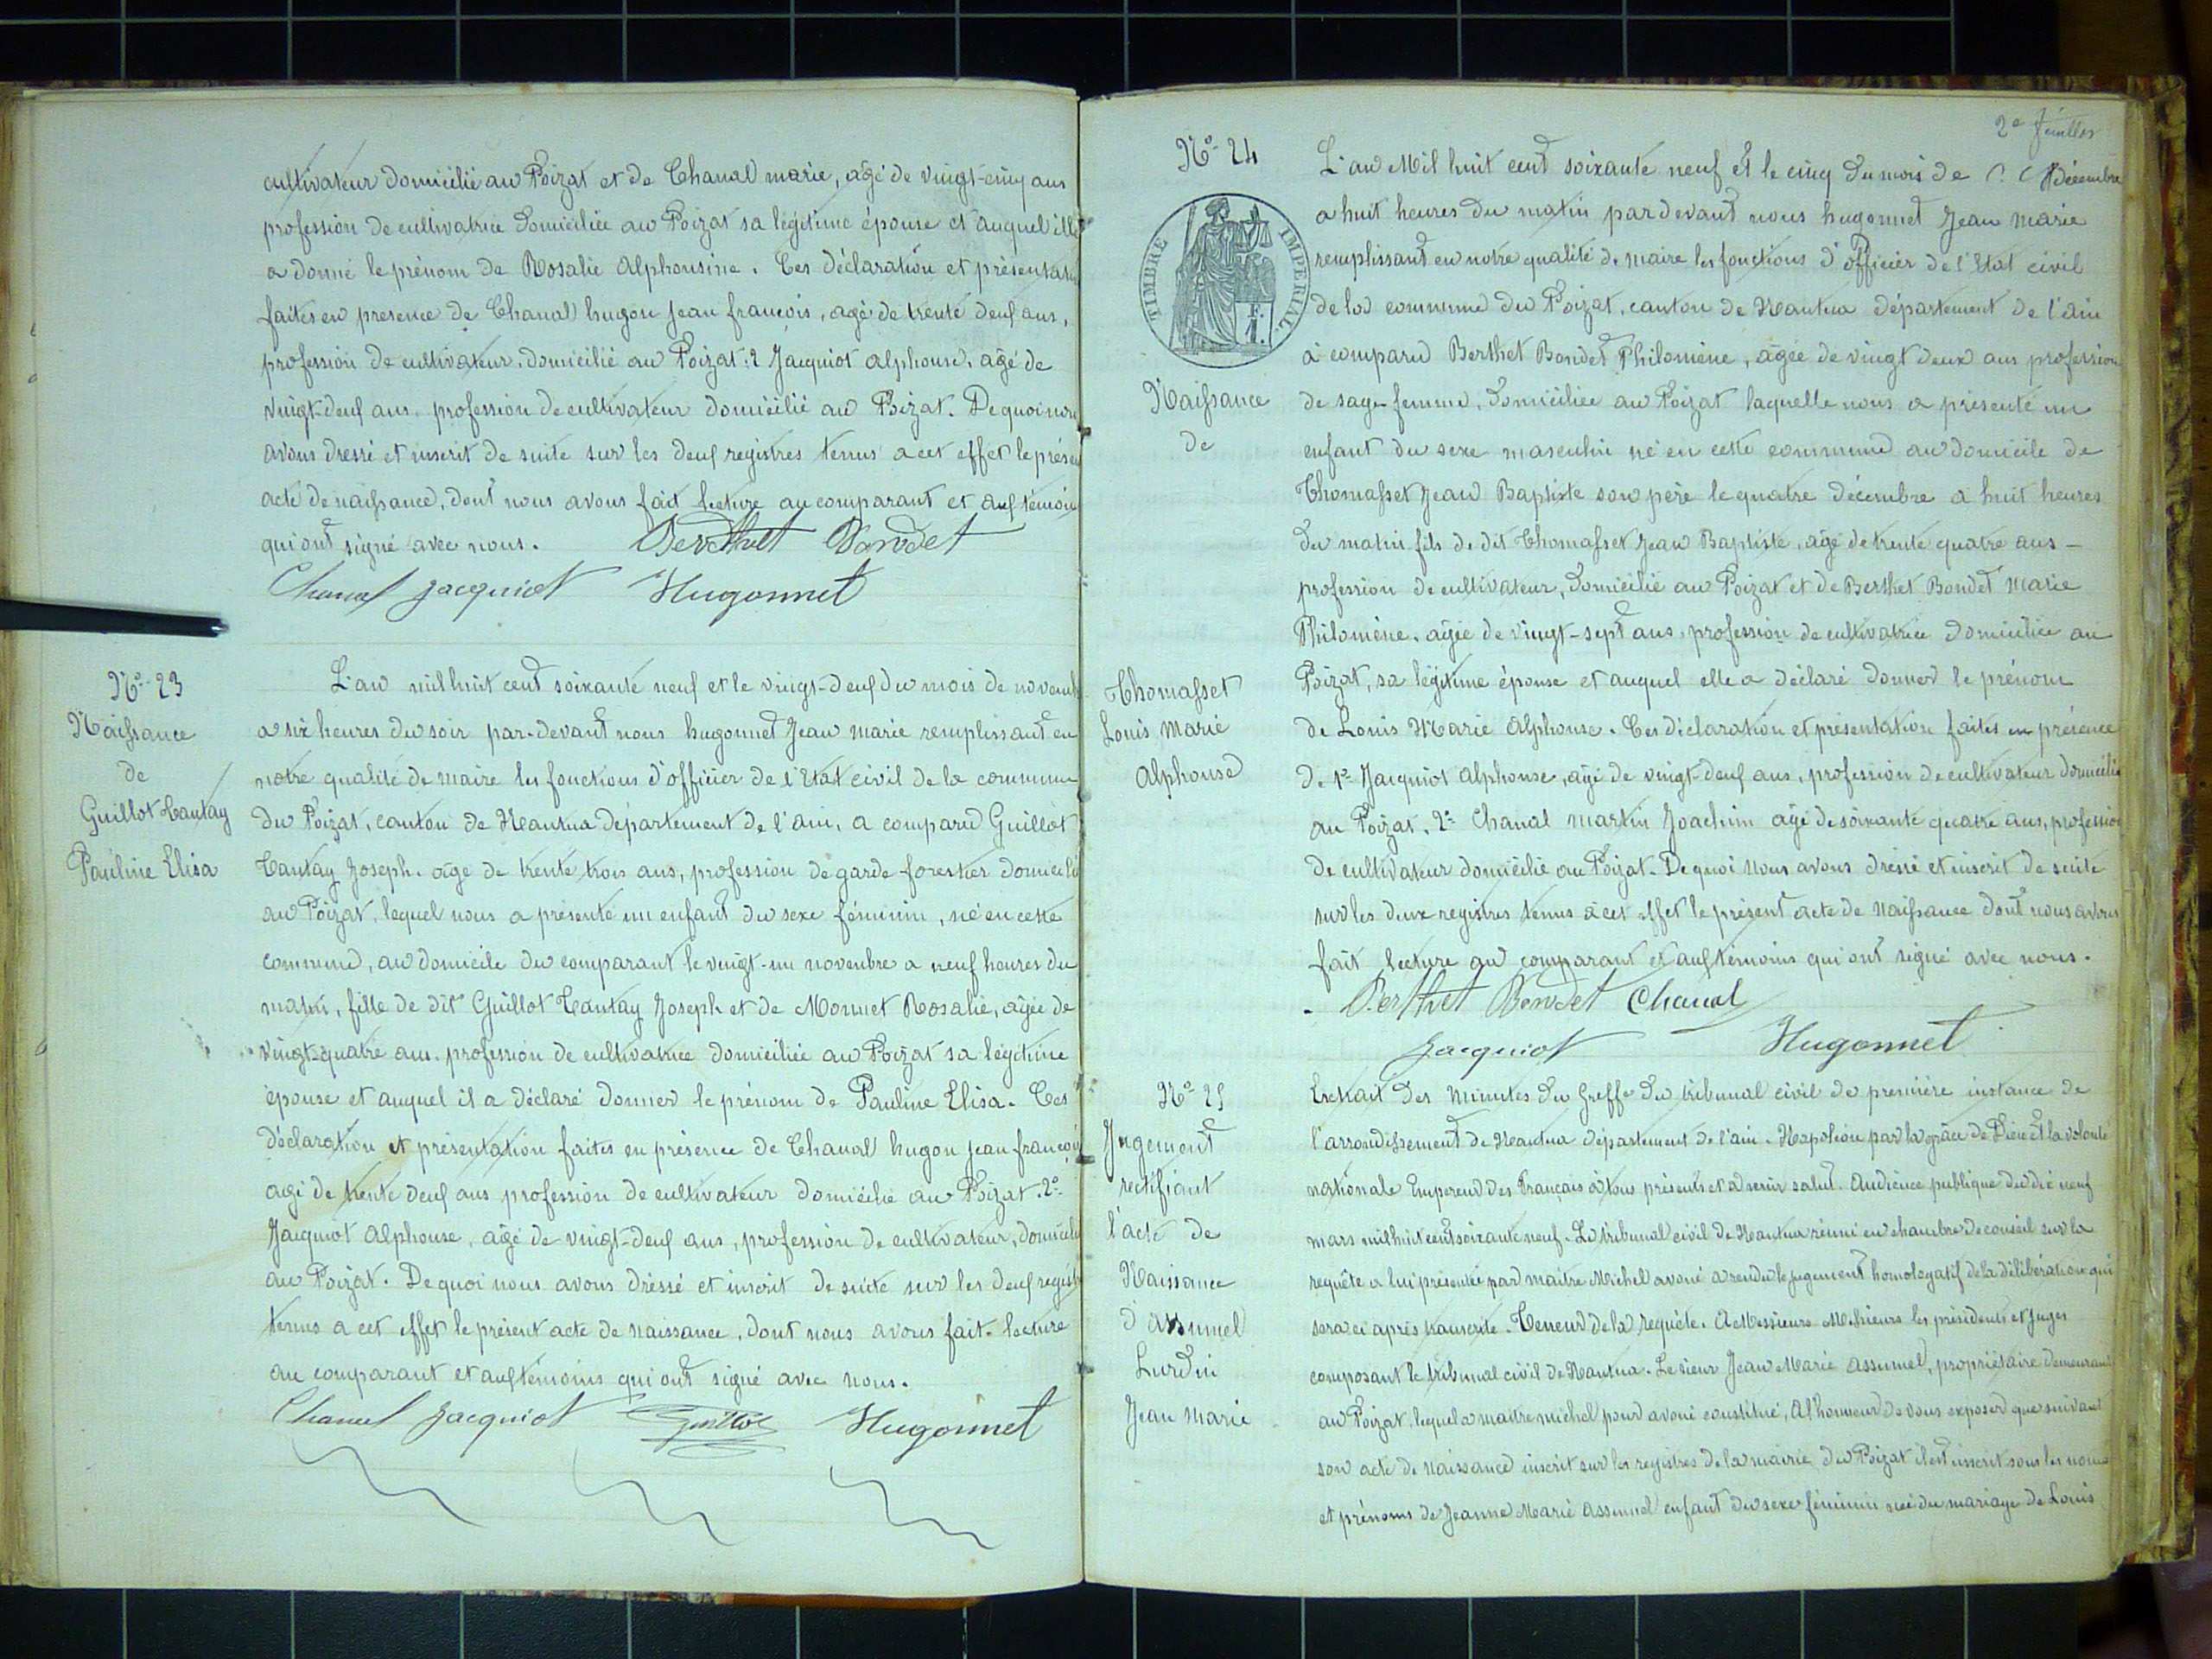 cultivateur domicilié au Poizat et de Chanal marie, agé de vingt-cinq ans
profession de cultivatrice domiciliée au Poizat sa légitime épouse et auquel ille
a donné le prénom de Rosalie Alphonsine. Ces déclaration et présentation
faites en presence de Chanal hugon Jean françois, agé de trente deuf ans,
profession de cultivateur domicilié au Poizat, 2 Jacquiot alphonse, agé de
vingt-deuf ans profession de cultivateur domicilié au Poizat. De quoi nous
avons dressé et inscrit de suite sur les deuf registres tenus a cet effet le présent
acte de naissance, dont nous avons fait lecture au comparant et auf témoins
qui ont signé avec nous. Berthet Bondet
Chanal Jacquiot Hugonnet
N°- 23
Naissance
de
Guillot Tantay
Pauline Elisa
L'an mil huit cent soixante neuf et le vingt-deuf du mois de novembre
a six heures du soir par-devant nous hugonnet Jean marie remplissant en
notre qualité de maire les fonctions d'officier de l'Etat civil de la commune
du Poizat, canton de Nantua département de l'ain, a comparu Guillot
Tantay Joseph. age de trente trois ans, profession de garde forestier domicilié
au Poizat, lequel nous a présenté un enfant du sexe féminin, né en cette
commune, au domicile du comparant le vingt-un novembre a neuf heures du
matin, fille de dit Guillot Tantay Joseph et de Monnet Rosalie, agée de
vingt-quatre ans profession de cultivatrice domiciliée au Poizat sa légitime
épouse et auquel il a déclaré donner le prénom de Pauline Elisa. Ces
déclaration et présentation faites en présence de Chanal hugon Jean françois
agé de trente deuf ans profession de cultivateur domicilié au Poizat. 2°-
Jacquiot Alphonse, agé de vingt-deuf ans, profession de cultivateur, domicilié
au Poizat. De quoi nous avons dréssé et inscrit de suite sur les deuf registres
tenus a cet effet le présent acte de naissance, dont nous avons fait lecture
au comparant et auf témoins qui ont signé avec nous.
Chanal Jacquiot Guillot Hugonnet
2e feuillet
N°- 24
TIMBRE IMPÉRIAL
Naissance
de
Thomasset
Louis Marie
Alphonse
L'an Mil huit cent soixante neuf et le cinq du mois de décembre
a huit heures du matin par devant nous hugonnet Jean Marie
remplissant en notre qualité de maire les fonctions d'officier de l'Etat civil
de la commune du Poizat, canton de Nantua département de l'ain
à comparu Berthet Bondet Philomène, agée de vingt deux ans profession
de sage-femme, domiciliée au Poizat laquelle nous a présenté un
enfant du sexe masculin né en cette commune au domicile de
Thomasset Jean Baptiste son père le quatre décembre a huit heures
du matin fils de dit Thomasset Jean Baptiste, agé de trente quatre ans -
profession de cultivateur, domicilié au Poizat et de Berthet Bondet Marie
Philomène, agée de vingt-sept ans, profession de cultivatrice domiciliée au
Poizat, sa légitime épouse et auquel elle a déclaré donner le prénom
de Louis Marie Alphonse. Ces déclaration et présentation faites en présence
de 1°- Jacquiot Alphonse, agé de vingt-deuf ans, profession de cultivateur domicilié
au Poizat, 2°- Chanal martin Joachim agé de soixante quatre ans, profession
de cultivateur domicilié au Poizat. De quoi nous avons dréssé et inscrit de suite
sur les deux registres tenus à cet effet le présent acte de naissance dont nous avons
fait lecture au comparant et auf témoins qui ont signé avec nous.
Berthet Bondet Chanal
Jacquiot Hugonnet
N°- 25
Jugement
rectifiant
l'acte de
Naissance
d'assumel
Lurdin
Jean Marie
Extrait des Minutes du Greffe du tribunal civil de première instance de
l'arrondissement de Nantua département de l'ain. Napoléon par la grâce de Dieu et la volonté
nationale Empereur des français à tous présents et à venir salut. Audience publique du dix neuf
mars mil huit cent soixante neuf. Le tribunal civil de Nantua réuni en chambre de conseil sur la
requête a lui présentée par maitre Michel avoué a rendu le jugement homologatif de la délibération qui
sera ci après transcrite. Teneur de la requête. A Messieurs Messieurs les présidents et Juges
composant le tribunal civil de Nantua. Le sieur Jean Marie assumel, propriétaire demeurant
au Poizat, lequel a maitre michel pour avoué constitué, A l'honneur de vous exposer que suivant
son acte de naissance inscrit sur les registres de la mairie du Poizat il est inscrit sous les noms
et prénoms de Jeanne Marie assumel enfant du sexe féminin née du mariage de Louis